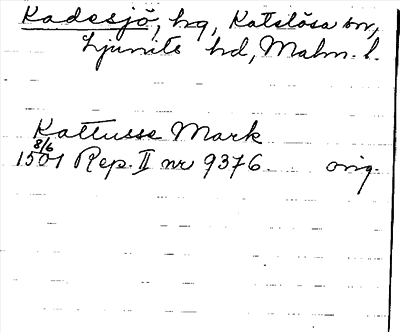 Kadesjö, hg, Katslösa sn,
Ljunits hd, Malm. l.
Kattusse Mark
8/6
1501 Rep. II nr 9376 orig.